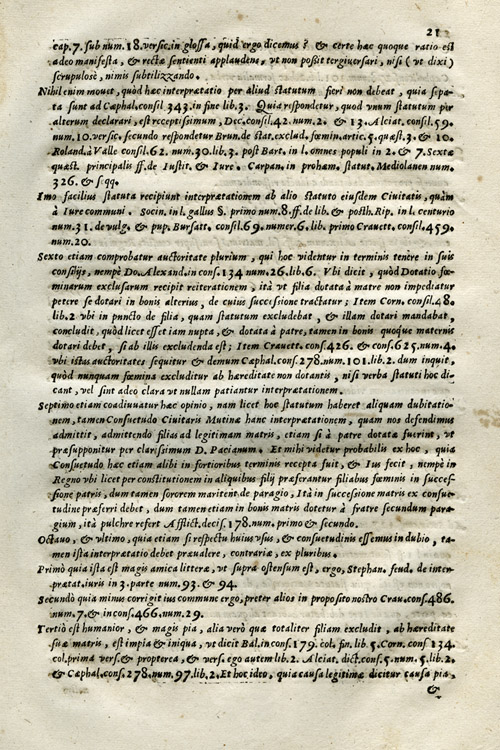 21
cap.7. sub num.18. versic. in glossa, quid ergo dicemus? & certe hæc quoque ratio est
adeo manifesta, & rectæ sentienti applaudens, vt non possit tergiuersari, nisi (vt dixi)
scrupulosè, nimis subtilizzando.
Nihil enim mouet, quòd hæc interpretatio per aliud statutum fieri non debeat, quia sepa-
ta sunt ad Cæphal.consil 343. in fine lib.3. Quia respondetur, quod vnum statutum per
alterum declarari, est receptissimum, Dec.consil.42.num.2. & 13. Alciat. consil.59.
num.10. versic. secundo respondetur Brun.de stat.exclud. fœmin.artic.5.quæst.3. & 10.
Roland.à Valle consil.62. num.30.lib.3. post Bart. in l. omnes populi in 2. & 7. Sexta
quæst. principalis ff.de Iustit. & Iure. Carpan. in prohæm. statut. Mediolanen num.
326. & sqq.
Imo facilius statuta recipiunt interprætationem ab alio statuto eiusdem Ciuitatis, quàm
à Iure communi. Socin. in l. gallus §. primo num.8. ff.de lib. & posth. Rip. in l. centurio
num.31. de vulg. & pup. Bursatt. consil.69.numer.6. lib. primo Crauett. consil.459.
num.20.
Sexto etiam comprobatur auctoritate plurium, qui hoc videntur in terminis tenere in suis
consilijs, nempè Do.Alexand.in cons.134 num.26.lib.6. Vbi dicit, quòd Dotatio fœ-
minarum exclusarum recipit reiterationem, ità vt filia dotata à matre non impediatur
petere se dotari in bonis alterius, de cuius successione tractatur; Item Corn. consil.48.
lib.2 vbi in puncto de filia, quam statutum excludebat, & illam dotari mandabat,
concludit, quòd licet esset iam nupta, & dotata à patre, tamen in bonis quoque maternis
dotari debet, si ab illis excludenda est; Item Crauett.cons.426. & cons.625.num.4.
vbi istas auctoritates sequitur & demum Cæphal.cons.278.num.101.lib.2. dum inquit,
quòd nunquam fœmina excluditur ab hæreditate non dotantis, nisi verba statuti hoc di-
cant, vel sint adeo clara vt nullam patiantur interprætationem.
Septimo etiam coadiuuatur hæc opinio, nam licet hoc statutum haberet aliquam dubitatio-
nem, tamen Consuetudo Ciuitaris Mutinæ hanc interprætationem, quam nos defendimus
admittit, admittendo filias ad legitimam matris, etiam si à patre dotatæ fuerint, vt
præsupponitur per clarissimum D. Pacianum. Et mihi videtur probabilis ex hoc, quia
Consuetudo hæc etiam alibi in fortioribus terminis recepta fuit, & Ius fecit, nempè in
Regno vbi licet per constitutionem in aliquibus filij præferantur filiabus fœminis in succes-
sione patris, dum tamen sororem maritent de paragio, Ità in successione matris ex consue-
tudine præferri debet, dum tamen etiam in bonis matris dotetur à fratre secundum para-
gium, ità pulchre refert Afflict.decis.178.num.primo & secundo.
Octauo, & vltimo, quia etiam si respectu huius vsus, & consuetudinis essemus in dubio, ta-
men ista interprætatio debet præualere, contrariæ, ex pluribus.
Primò quia ista est magis amica litteræ, vt supra ostensum est, ergo, Stephan. feud. de inter-
prætat.iuris in 3.parte num.93. & 94.
Secundò quia minus corrigit ius commune ergo, preter alios in proposito nostro Crau.cons.486.
num.7. & in cons.466.num.29.
Tertiò est humanior, & magis pia, alia verò quæ totaliter filiam excludit, ab hæreditate
suæ matris, est impia & iniqua, vt dicit Bal.in cons.179. col. fin. lib. 5. Corn. cons 134.
col.prima vers.& propterea, & vers. ego autem lib.2. Alciat. dict.cons.5.num.5.lib.2.
& Cæphal.cons.278.num.97.lib.2. Et hoc ideo, quia causa legitimæ dicitur causa pia,
&